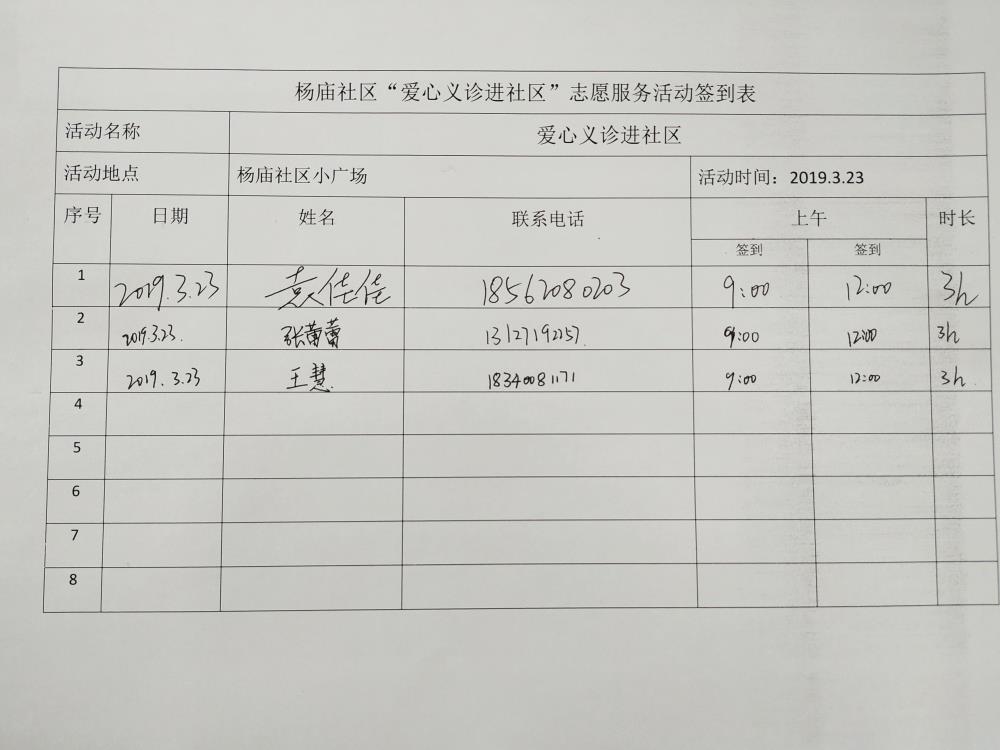 杨庙社区“爱心义诊进社区”志愿服务活动签到表
活动名称 爱心义诊进社区
活动地点 杨庙社区小广场 活动时间：2019.3.23
序号 日期 姓名 联系电话 上午 时长
签到 签到
1 2019.3.23 袁佳佳 18562080203 9:00 12:00 3h
2 2019.3.23. 张蕾蕾 13127192157. 9:00 12:00 3h
3 2019.3.23 王慧. 18340081171 9:00 12:00 3h
4
5
6
7
8